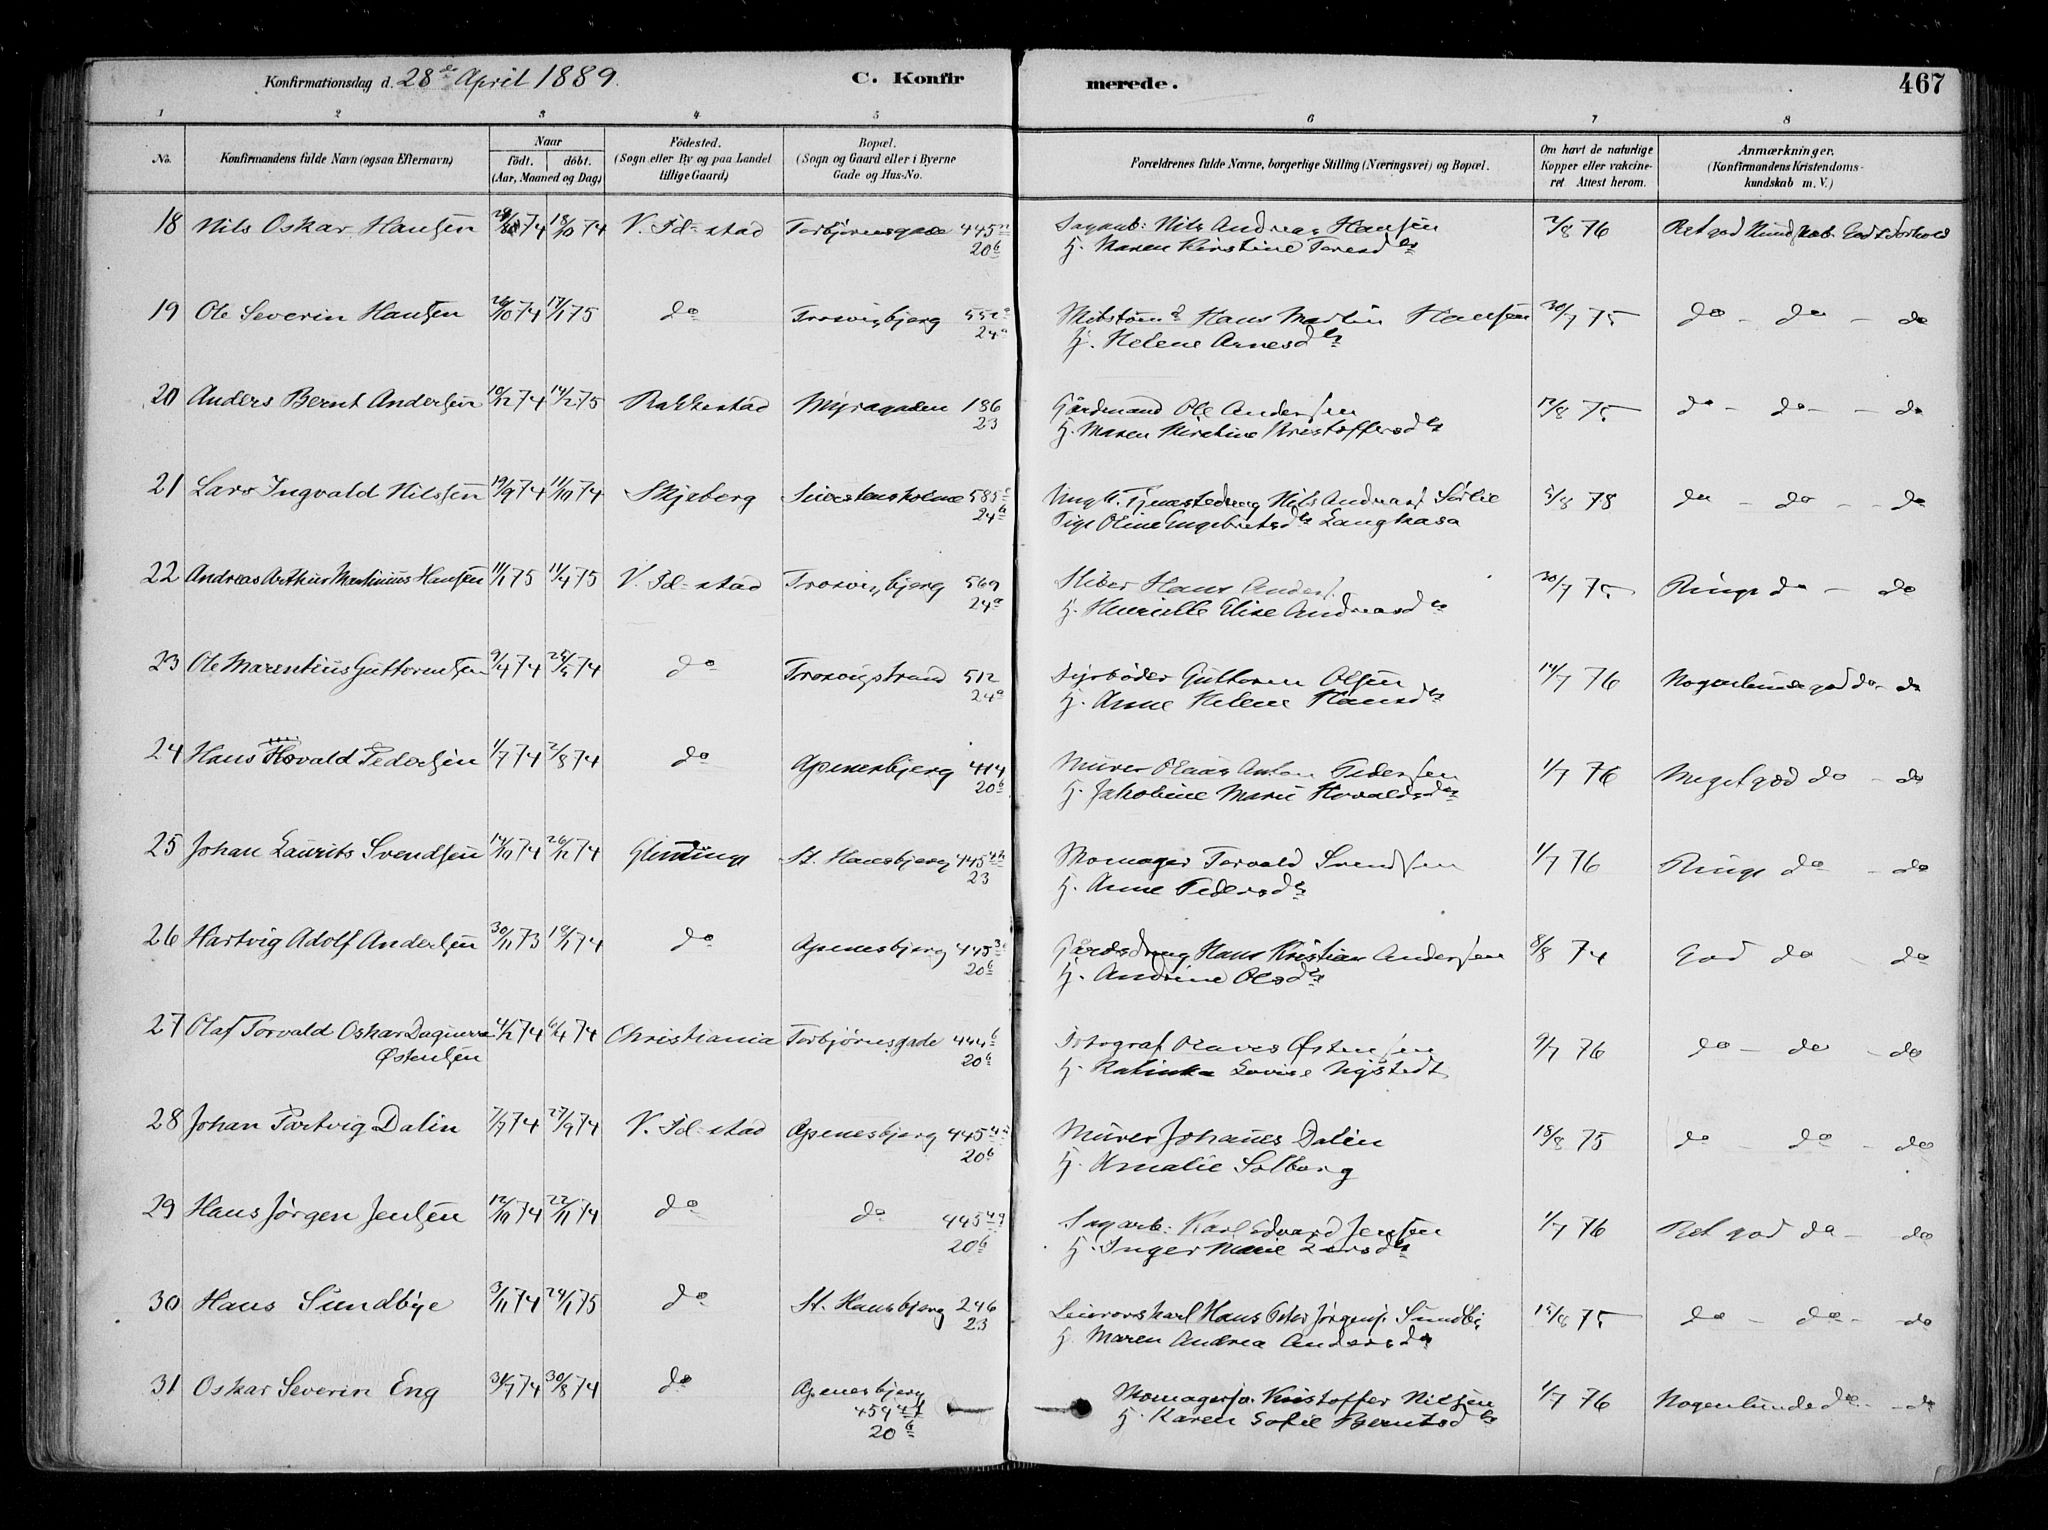 Konfirmationsdag d. 28de April 1889. C. Konfirmerede. 467
1 2 3 4 5 6 7 8
No. Konfirmandens fulde Navn (ogsaa Efternavn) Naar födt. döbt. (Aar, Maaned og Dag) Födested. (Sogn eller By og paa Landet tillige Gaard) Bopæl. (Sogn og Gaard eller i Byerne Gade og Hus-No. Forældrenes fulde Navne, borgerlige Stilling (Næringsvei) og Bopæl. Om havt de naturlige Kopper eller vakcineret Attest herom. Anmærkninger. (Konfirmandens Kristendomskundskab m. V.)
18 Nils Oskar Hansen 18/10 74 V. Fd-stad Torbjørnsgade 445 Sagarb. Nils Andreas Hansen 2/8 76 Ret god Kundskab Godt Forhold
20 b H. Maren Kirstine Toresdtr
19 Ole Severin Hansen 29/10 74 17/1 75 do Trosvigbjerg 552 Hans Martin Hansen 30/7 75 do - do - do
24 a H. Helene Arnesdtr
20 Anders Bernt Andersen 10/12 74 14/2 75 Rakkestad Myragaden 186 Gårdmand Ole Andersen 12/8 75 do - do - do
23 H. Maren Kirstine Kristoffersdtr
21 Lars Ingvald Nilssen 19/9 74 11/10 74 Skjeberg 585 Nils Andreas Sørlie 5/8 78 do - do - do
24 b Pige Oline Engebretsdtr Langkasa
22 Andreas Arthur Martinius Hansen 11/1 75 11/4 75 V. Fd-stad Trosvigbjerg 569 Sliber Hans Anders. 30/7 75 Ringe do - do
24 a H. Elise Andreasdtr
23 Ole Marentius Guttormsen 9/4 74 25/5 74 do Trosvigstrand 512 Fyrbøder Guttorm Olsen 14/7 76 Nogenlunde god do - do
24 a H. Anne Helene Hansdtr
24 Hans Hovald Pedersen 1/7 74 2/8 74 do Apenesbjerg 414 Murer Claus Anton Pedersen 1/7 76 Meget god do - do
20 b H. Jakobine Marie Hovaldsdtr
25 Johan Laurits Svendsen 14/10 74 26/12 74 Glemminge St. Hansbjerg 445 Skomager Torvald Svendsen 1/7 76 Ringe do - do
23 H. Anne Pedersdtr
26 Hartvig Adolf Andersen 30/11 73 18/1 74 do Apenesbjerg 445 Gårdsdreng Hans Kristian Andersen 8/8 74 God do - do
20 b H. Andrine Olsdtr
27 Olaf Torvald Oskar Dagmar 4/2 74 6/4 74 Christiania Torbjørnsgade 444 b Fotograf Østensen 9/7 76 do - do - do
Østensen 20 b H. Katinka Lovise Nystedt
28 Johan Hartvig Dalin 7/7 74 27/9 74 V. Fd-stad Apenesbjerg 445 Murer Johannes Dalin 18/8 75 do - do - do
20 b H. Amalie Solberg
29 Hans Jørgen Jensen 12/10 74 22/11 74 do do 445 Sagarb. Karl Edvard Jensen 1/7 76 Ret god do - do
20 b H. Inger Marie Larsdtr
30 Hans Sundbye 3/11 74 24/1 75 do St. Hansbjerg 246 Hans Peter Jørgens. Sundby 15/8 75 do - do - do
23 H. Maren Andrea Andersdtr
31 Oskar Severin Eng 31/7 74 30/8 74 do Apenesbjerg Kristoffer Nilsen 1/7 76 Nogenlunde do - do
454 H. Karen Sofie Berntsdtr
20 b